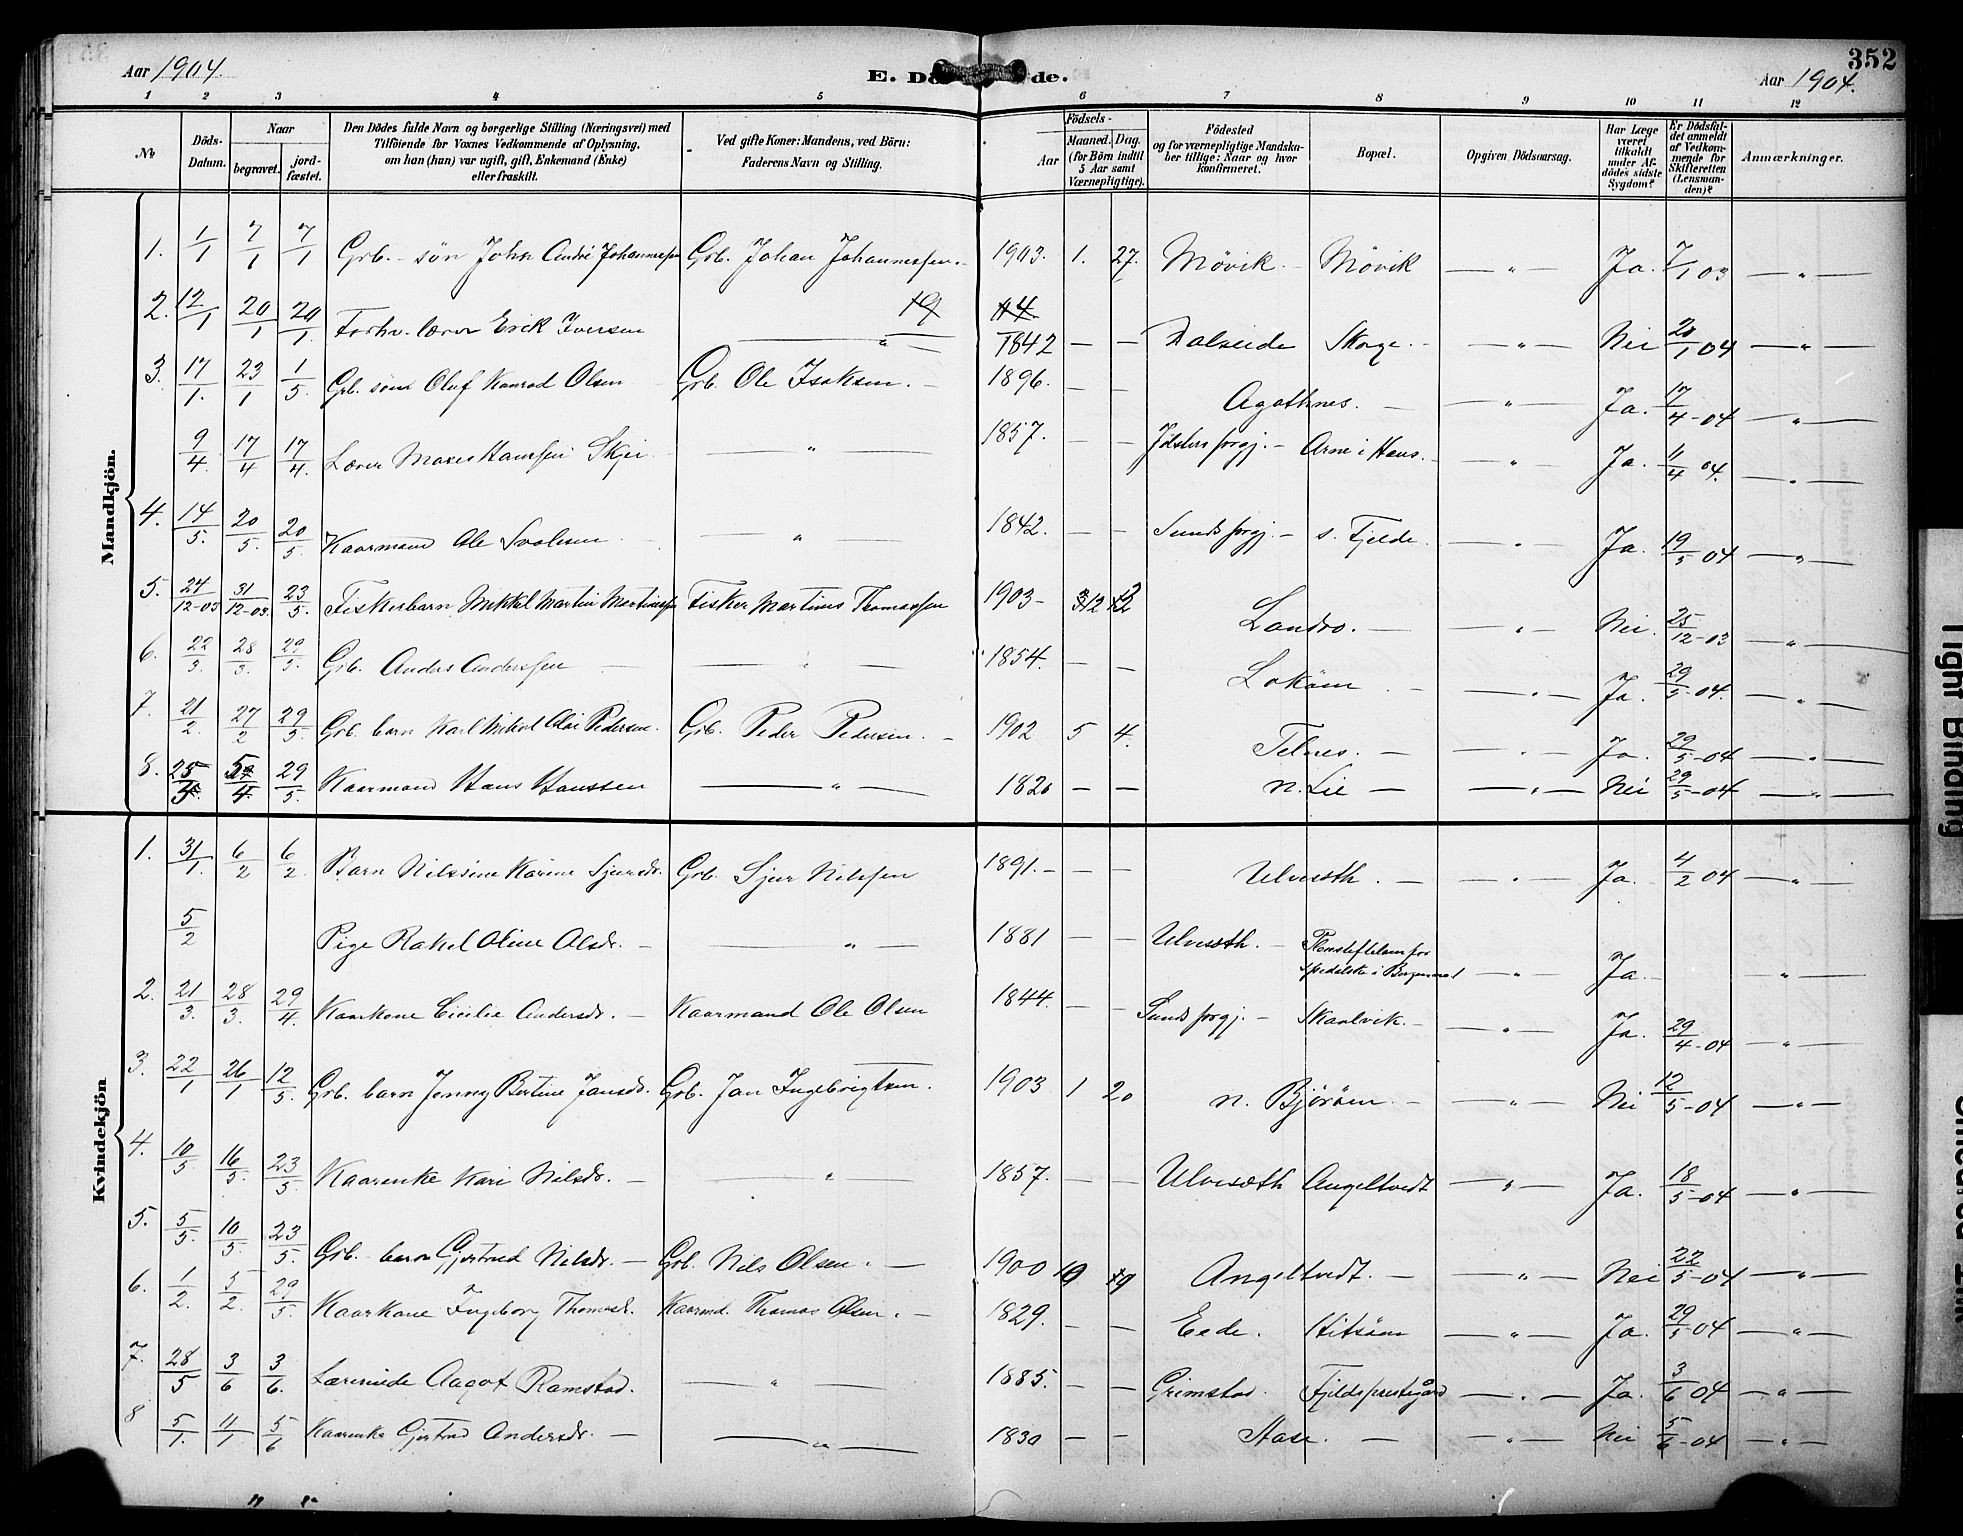 352
Aar 1904. E. Dö de. Aar 1904.
1 2 3 4 5 6 7 8 9 10 11 12
№ Döds-Datum. Naar begravet. jordfæstet. Den Dödes fulde Navn og borgerlige Stilling (Næringsvei) med Tilföiende for Voxnes Vedkommende af Oplysning, om han (hun) var ugift, gift, Enkemand (Enke) eller fraskilt. Ved gifte Koner: Mandens, ved Börn: Faderens Navn og Stilling. Aar Födsels- Maaned. Dag. (for Börn indtil 5 Aar samt Værnepligtige). Födested og for værnepligtige Mandskaber tillige: Naar og hvor konfirmeret. Bopæl. Opgiven Dödsaarsag. Har Læge været tilkaldt under Afdödes sidste Sygdom? Er Dödsfaldet anmeldt af Vedkommende for Skifteretten (Lensmanden)? Anmærkninger.
Mandkjön.
1. 1/1 7/1 7/1 Grb. - søn John André Johannessen Grb. Johan Johannessen. 1903. 1. 27. Møvik - Møvik — " — Ja. 7/1 03 — " —
2. 12/1 20/1 20/1 Forhv. lærer Erik Iversen — " — 1842 — — Dalseide Skoge. — " — Nei 20/1 04 — " —
3. 17/1. 23/1 1/5 Grb. søn Oluf Konrad Olsen Grb. Ole Isaksen. - 1896. — — Agothnes. — — " — Ja. 17/4 -04 — " —
9/4 17/4 17/4. Lærer Moses Hanssen Skjei — " — 1857. — — Jølster prgj. - Arne i Haus. — " — Ja. 11/4 04. — " —
4. 14/5. 20/5. 20/5 Kaarmand Ole — " — 1842. — — Sunds prgj. - s. Fjelde. — " — Ja. 19/5 04 — " —
5. 24/12-03 31/12-03. 23/5. Fiskerbarn Mikkel Martin Martinessen Fisker Martines Thomassen 1903 - 12 Landro. — — " — Nei. 25/12-03 — " —
6. 22/3. 28/3. 29/5. Grb. Anders Anderssen — — " — 1854. — — Lokøen — — " — Ja. 29/5-04. — " —
7. 21/2. 27/2 29/5. Grb. barn Karl Mikal Olai Pedersen. Grb. Peder Pedersen. - 1902 5 4. Telnes. — — " — Ja. 29/5-04 — " —
8. 25/3. 5/4 29/5. Kaarmand Hans Hanssen — " — 1820 — — n. Lie — " — Nei 29/5-04 — " —
Kvindekjön
1. 31/1. 6/2 6/2 Barn Nilssine Karine Sjursdr. Grb. Sjur Nilssen 1891. - — — Ulvesth. — — " — Ja. 4/2 04 — " —
5/2 Pige Rakel Oline Olsdr. - — " — 1881 — — Ulvesth. - Pleiestiftelsen for spedalske i Bergen — " — Ja - " —
2. 21/3. 28/3. 29/4. Kaarkone Cicilie Andersdr. - Kaarmand Ole Olsen 1844. — — Sunds prgj. - Skaalvik. - — " — Ja. 29/4-04 — " —
3. 22/1 26/1 12/5. Grb. barn Jenny Bertine Jansdr. Grb. Jan Ingebrigtsen. 1903 1 20 n. Bjørøen. - — " — Nei 12/5-04 — " —
4. 10/5. 16/5. 23/5. Kaarenke Kari Nilsdr. - — " — 1857. — — Ulvesæth Angeltvedt — " — Ja. 18/5-04 — " —
5. 5/5. 10/5. 23/5. Grb. barn Gjertrud Nilsdr. - Grb. Nils Olsen. - 1900 Angeltvedt. — — " — Nei 22/5-04 — " —
6. 1/2. 5/2. 29/5. Kaarkone Ingeborg Thomasdr. Kaarmd. Thomas Olsen. - 1829. — — Eede. — " — Ja. 29/5 04 — " —
7. 28/5 3/6 3/6. Lærerinde Aagot Ramstad. — " — 1885. — — Grimstad. Fjelds prestegård — " — Ja. 3/6 04 — " —
8 5/1. 11/1. 5/6 Kaarenke Gjertrud Andersdr. — — " — 1830 — — — — " — Nei 5/6-04 — " —
Tight Binding